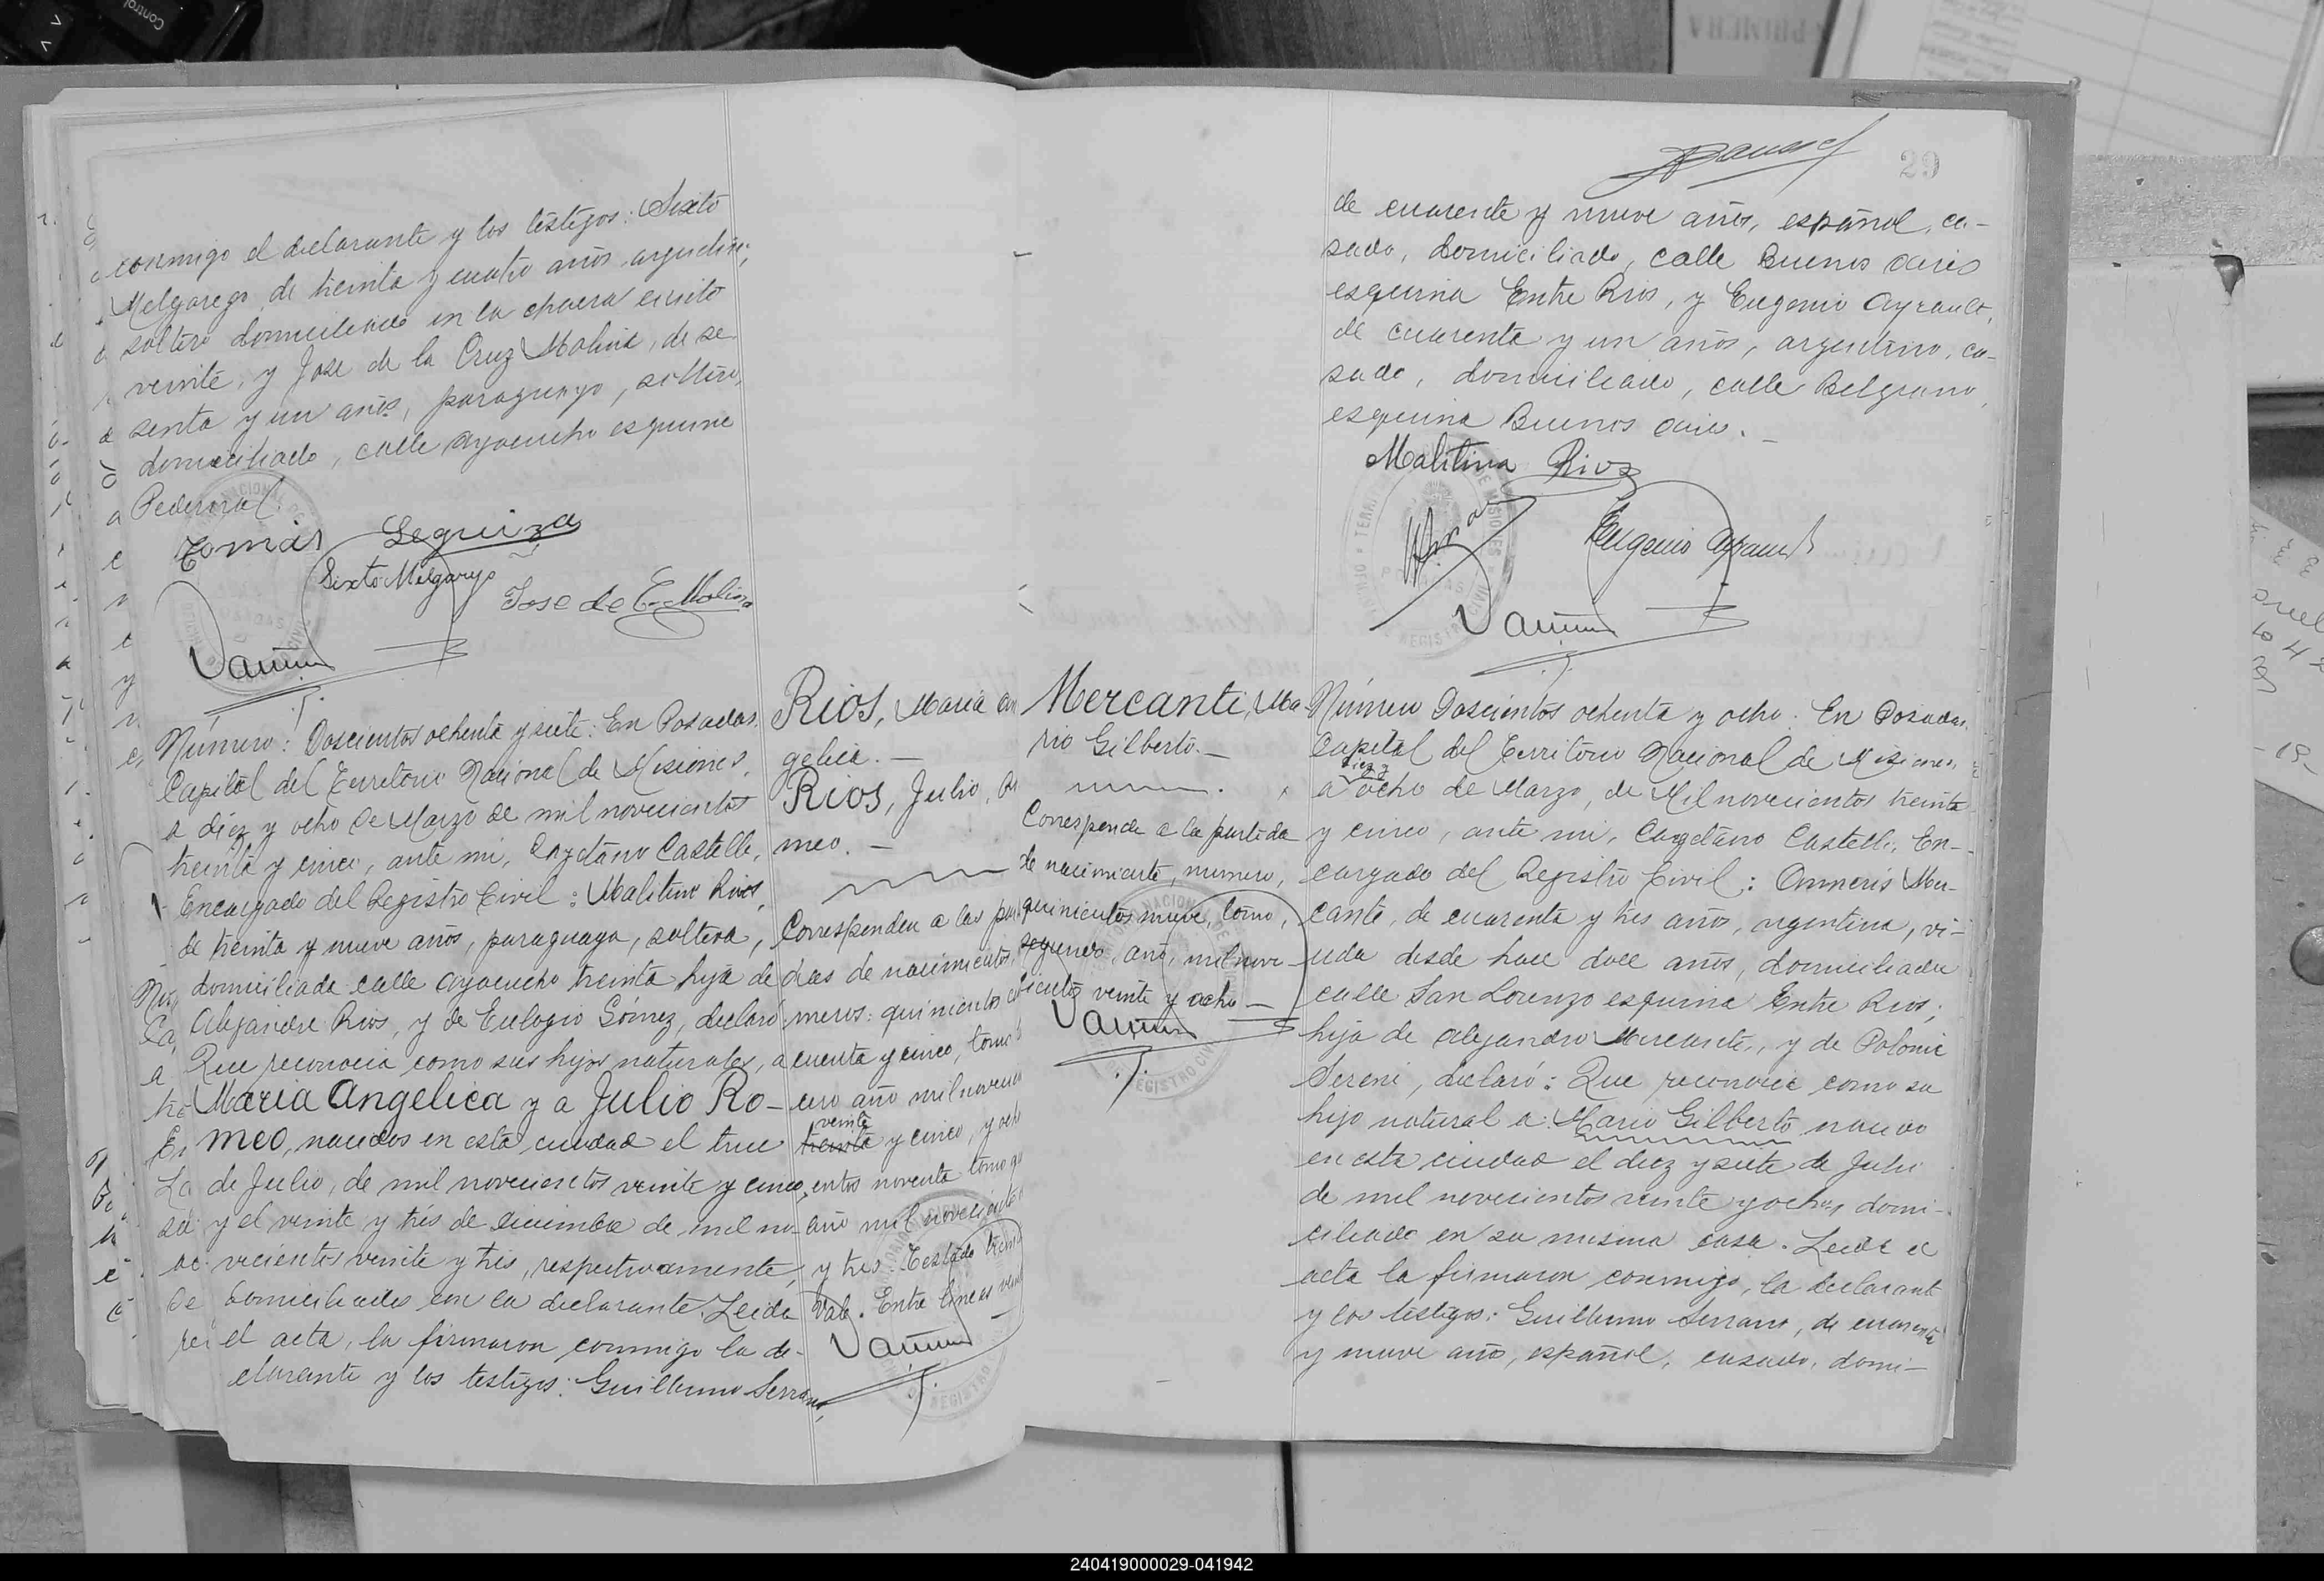 conmigo el declarante y los testigos: Sixto
Melgarejo, de treinta y cuatro años, argentino,
soltero domiciliado en la chacra ciento
veinte, y Jose de la Cruz Molina, de se-
senta y un años, paraguayo, soltero,
domiciliado, calle Ayacucho esquina
Pedernal.
Tomás Leguiza
Sixto Melgarejo
Jose de C. Molina
Número: Doscientos ochenta y siete: En Posadas,
Capital del Territorio Nacional de Misiones,
a diez y ocho de Marzo de mil novecientos
treinta y cinco, ante mi, Cayetano Castelli,
Encargado del Registro Civil: Malitina Rios,
de treinta y nueve años, paraguaya, soltera,
domiciliada calle Ayacucho treinta hija de
Alejandre Rios, y de Eulogia Gómez, declaró:
Que reconocia como sus hijos naturales, a
Maria Angelica y a Julio Ro-
meo, nacidos en esta ciudad el trece
de Julio, de mil novecientos veinte y cinco,
y el veinte y trés de diciembre de mil no-
vecientos veinte y tres, respectivamente,
domiciliados con la declarante. Leida
el acta, la firmaron conmigo la de-
clarante y los testigos: Guillermo Serrano,
Rios, Maria An
gelica. —
Rios, Julio, Ro
meo. —
Corresponden a las par
didas de nacimientos,
meros: quinientos cin
cuenta y cinco, tomo
año mil novecien
veinte
treinta y cinco, y och
cientos noventa tomo
año mil novecientos
y tres. Testado trein
Vale. Entre lineas vein
29
de cuarenta y nueve años, español, ca-
sado, domiciliado, calle Buenos Aires
esquina Entre Rios, y Eugenio Ayrault,
de cuarenta y un años, argentino, ca-
sado, domiciliado, calle Belgrano,
esquina Buenos Aires. —
Malitina Rios
Eugenio Ayrault
Mercanti, Ma
rio Gilberto. —
Corresponde a la partida
de nacimiento, numero,
quinientos nueve, tomo,
segundo, año, mil nove
cientos veinte y ocho —
Número Doscientos ochenta y ocho: En Posadas,
Capital del Territorio Nacional de Misiones,
diez y
a ocho de Marzo, de Mil novecientos treinta
y cinco, ante mi, Cayetano Castelli, En-
cargado del Registro Civil: Amneris Mer-
cante, de cuarenta y tres años, argentina, vi-
uda desde hace doce años, domiciliada
calle San Lorenzo esquina Entre Rios;
hija de Alejandro Mercante, y de Polonia
Sereni, declaró: Que reconocia como su
hijo natural a: Mario Gilberto nacido
en esta ciudad el diez y siete de Julio
de mil novecientos veinte y ocho, domi-
ciliado en su misma casa. Leida el
acta la firmaron conmigo, la declarante
y los testigos: Guillermo Serrano, de cuarenta
y nueve años, español, casado, domi-
240419000029-041942